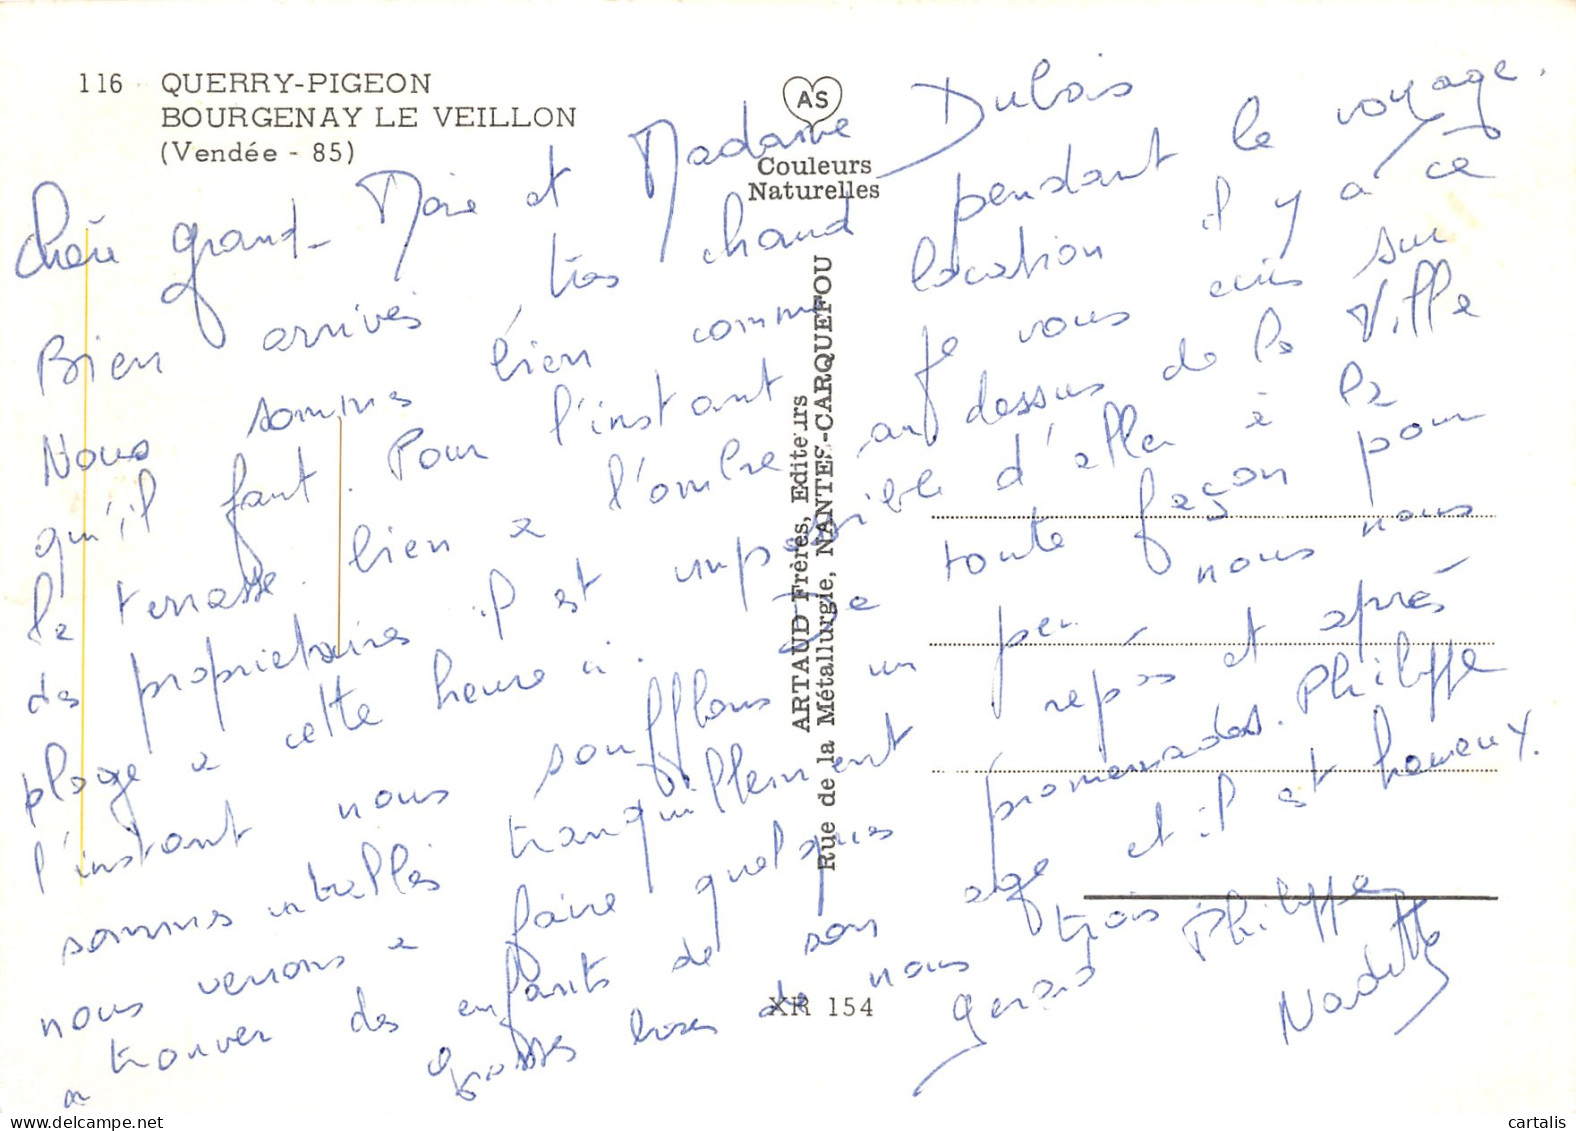 116 QUERRY-PIGEON
BOURGENAY LE VEILLON
(Vendée - 85)
AS
Couleurs
Naturelles
ARTAUD Frères, Editeurs
Rue de la Métallurgie, NANTES-CARQUEFOU
XR 154
Chère grand-Mère et Madame Dubois
Bien arrivés très chaud pendant le voyage.
Nous sommes bien comme location il y a ce
qu'il faut. Pour l'instant je vous écris sur
la terrasse bien a l'ombre au dessus de la Ville
des propriétaires il est impossible d'aller à la
plage a cette heure ci. De toute façon pour
l'instant nous soufflons un peu nous nous
sommes installés tranquillement repos et après
nous verrons a faire quelques promenades. Philippe
a trouver des enfants de son age et il est heureux.
Grosses bises de nous trois Philippe
Gerard Nadette
cartalis